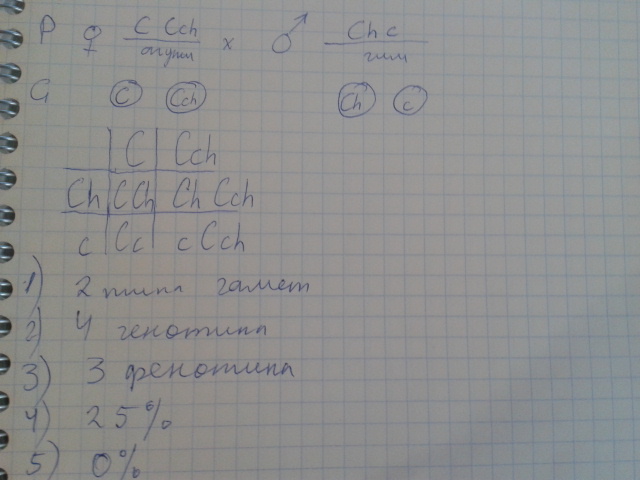 P ♀ C Cch x ♂ Ch c
агути гим
G C Cch Ch c
C Cch
Ch CCh Ch Cch
c Cc c Cch
1) 2 типа гамет
2) 4 генотипа
3) 3 фенотипа
4) 25%
5) 0%